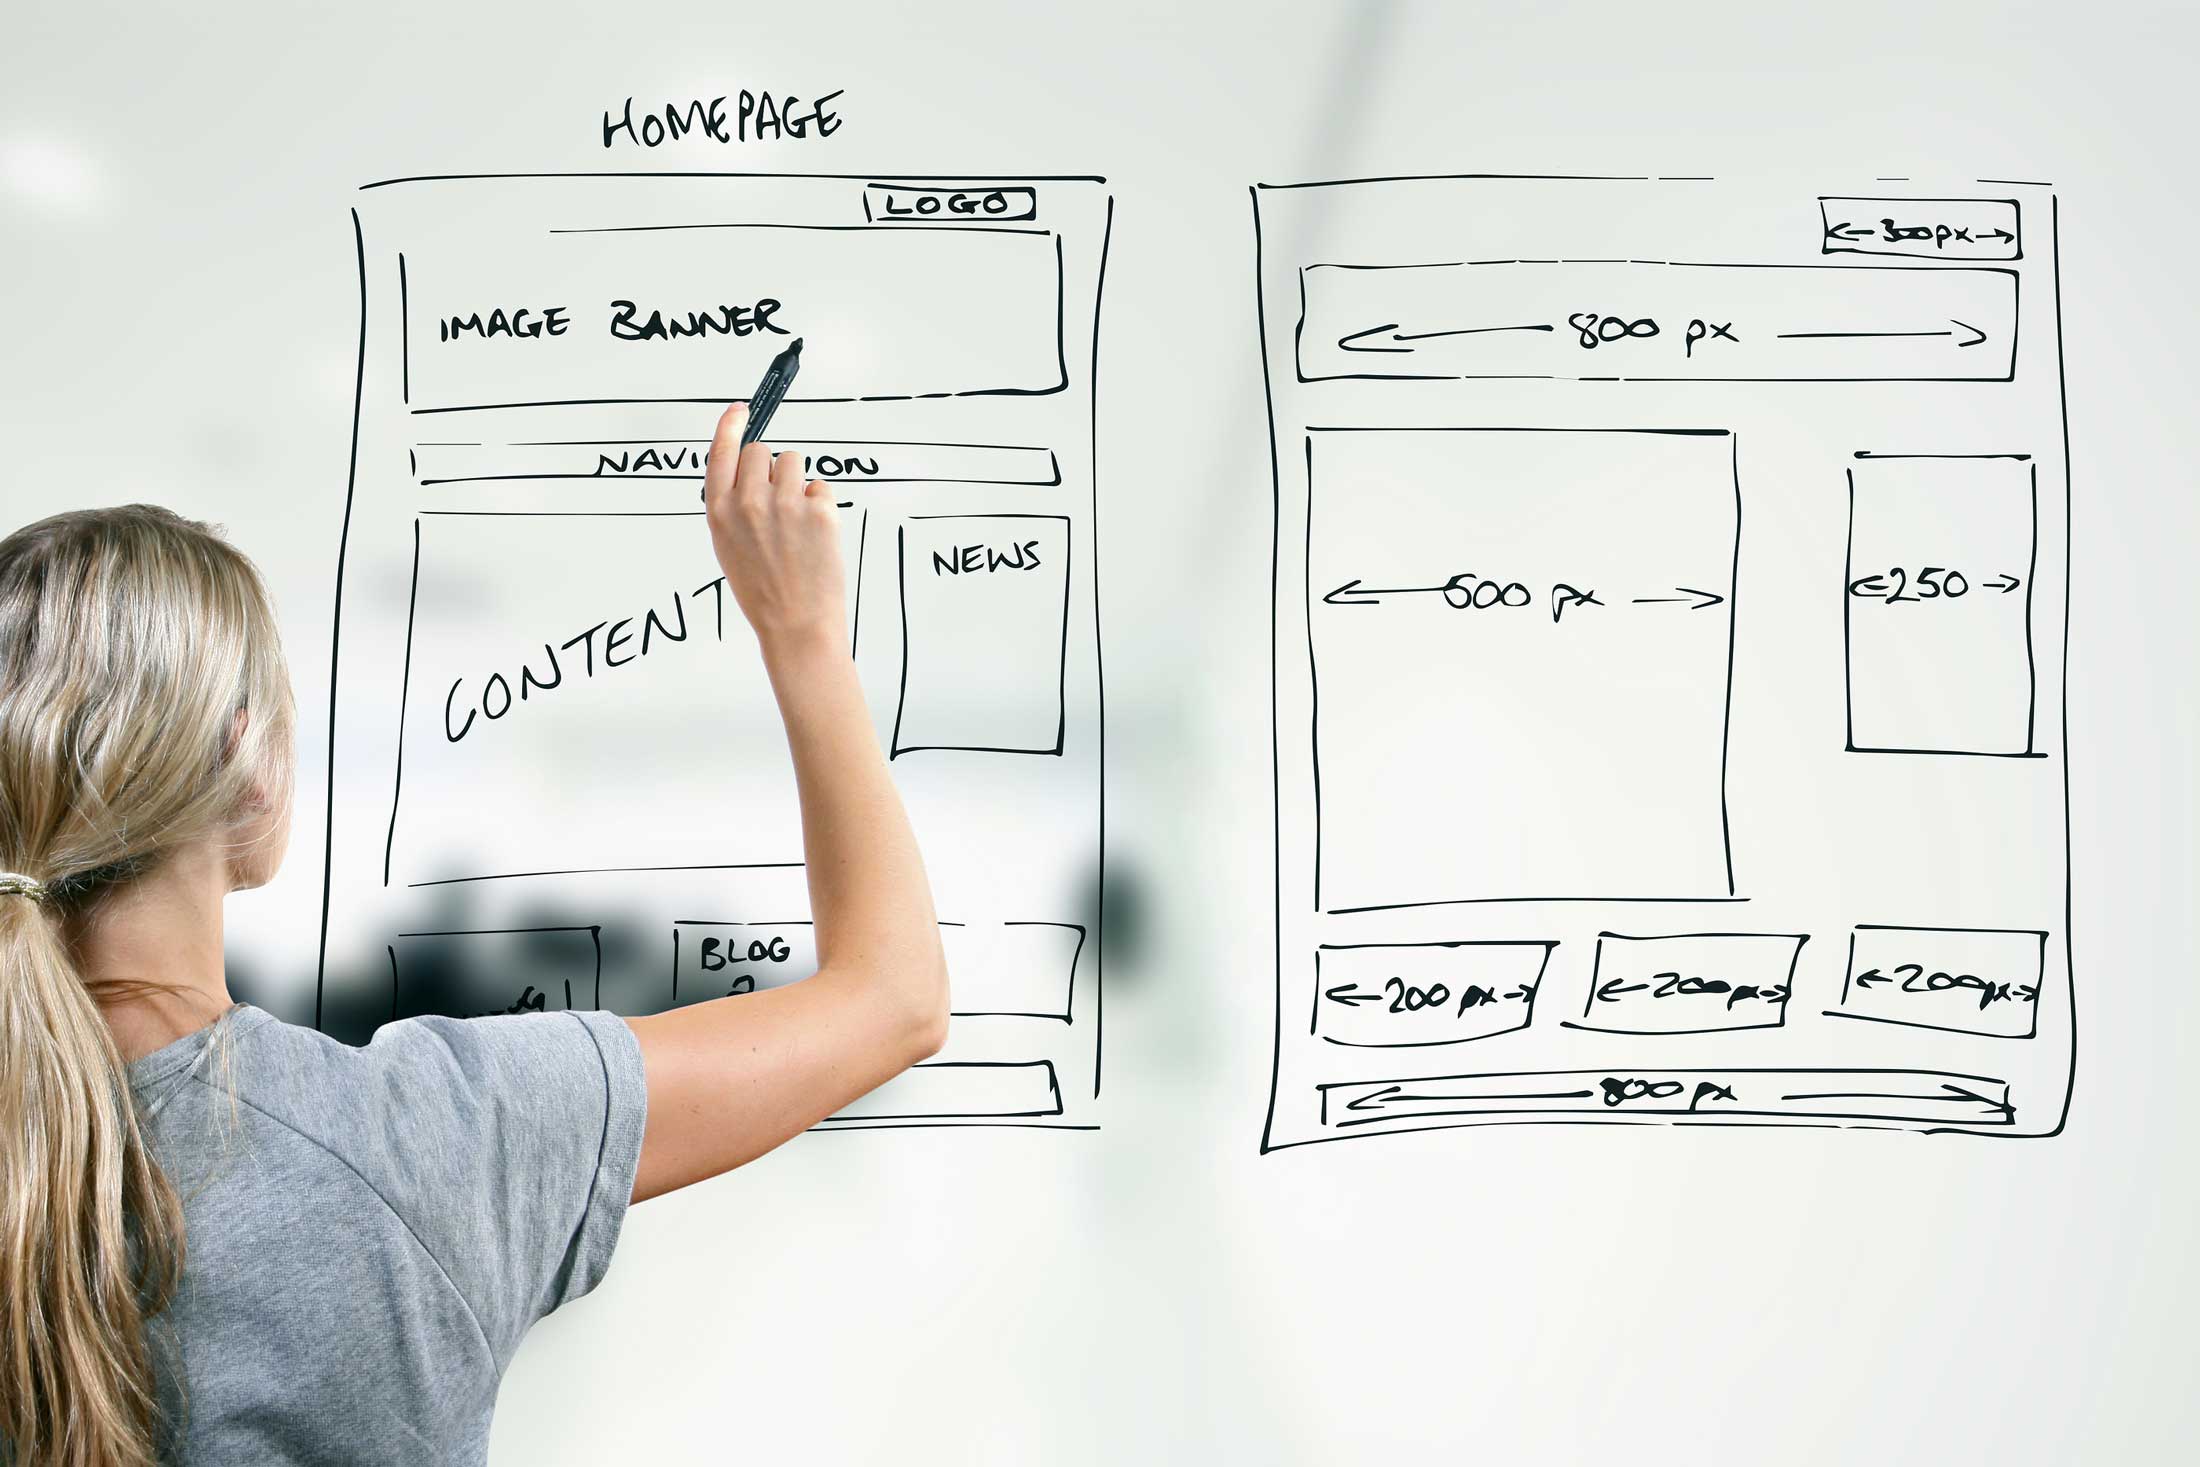 HOMEPAGE
LOGO
IMAGE BANNER
NEWS
CONTENT
BLOG
2
300px
800 px
500 px
250
200 px
200px
200px
800 px